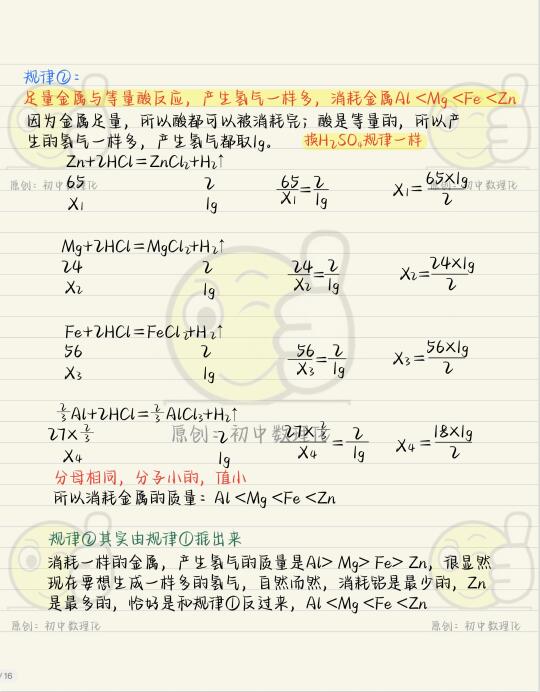 规律②:
足量金属与等量酸反应，产生氢气一样多，消耗金属Al<Mg<Fe<Zn
因为金属足量，所以酸都可以被消耗完；酸是等量的，所以产
生的氢气一样多，产生氢气都取1g。 换H₂SO₄规律一样
Zn+2HCl=ZnCl₂+H₂↑
原创：初中数理化
原创：初中数理化
65 2 65/X₁=2/1g X₁=65×1g/2
X₁ 1g
Mg+2HCl=MgCl₂+H₂↑
24 2 24/X₂=2/1g X₂=24×1g/2
X₂ 1g
Fe+2HCl=FeCl₂+H₂↑
56 2 56/X₃=2/1g X₃=56×1g/2
X₃ 1g
⅔Al+2HCl=⅔AlCl₃+H₂↑
27×⅔ 2 27×⅔/X₄=2/1g X₄=18×1g/2
X₄ 1g
原创：初中数理化
分母相同，分子小的，值小
所以消耗金属的质量：Al<Mg<Fe<Zn
规律②其实由规律①推出来
消耗一样的金属，产生氢气的质量是Al>Mg>Fe>Zn，很显然
现在要想生成一样多的氢气，自然而然，消耗铝是最少的，Zn
是最多的，恰好是和规律①反过来，Al<Mg<Fe<Zn
原创：初中数理化
原创：初中数理化
/16